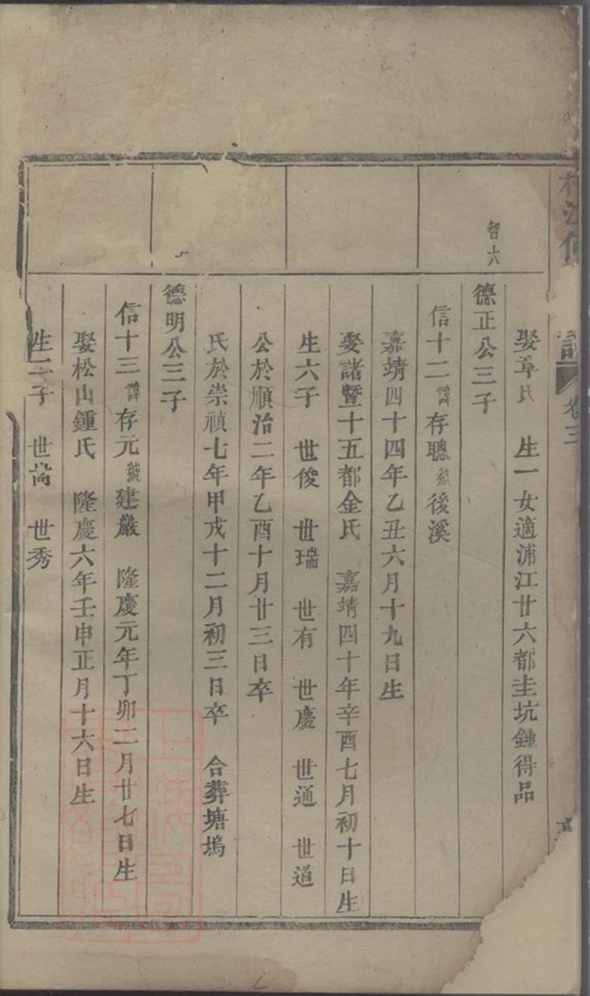 譜 卷三
智六
娶章氏 生一女適浦江廿六都圭坑鍾得品
德正公三子
信十二諱存聰號後溪
嘉靖四十四年乙丑六月十九日生
娶諸暨十五都金氏 嘉靖四十年辛酉七月初十日生
生六子 世俊 世瑞 世有 世慶 世通 世道
公於順治二年乙酉十月廿三日卒
氏於崇禎七年甲戌十二月初三日卒 合葬塘塢
德明公三子
信十三諱存元號建嚴 隆慶元年丁卯二月廿七日生
娶松山鍾氏 隆慶六年壬申正月十六日生
生二子 世嵩 世秀